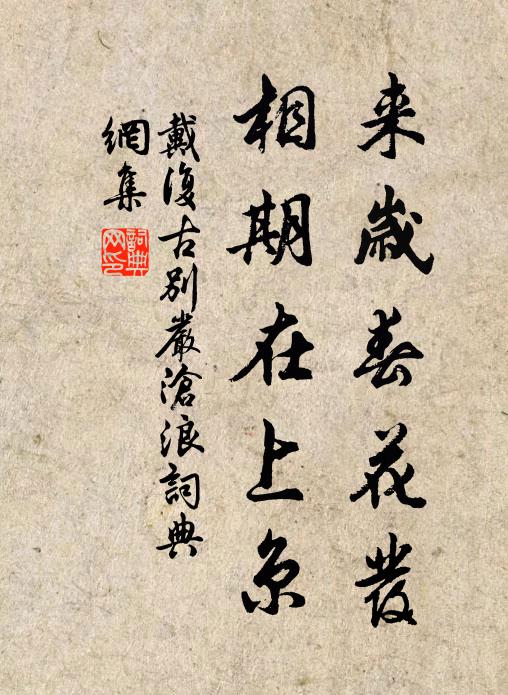 来歲春花發
相期在上京
戴復古別嚴滄浪詞典
網集
詞典
网印